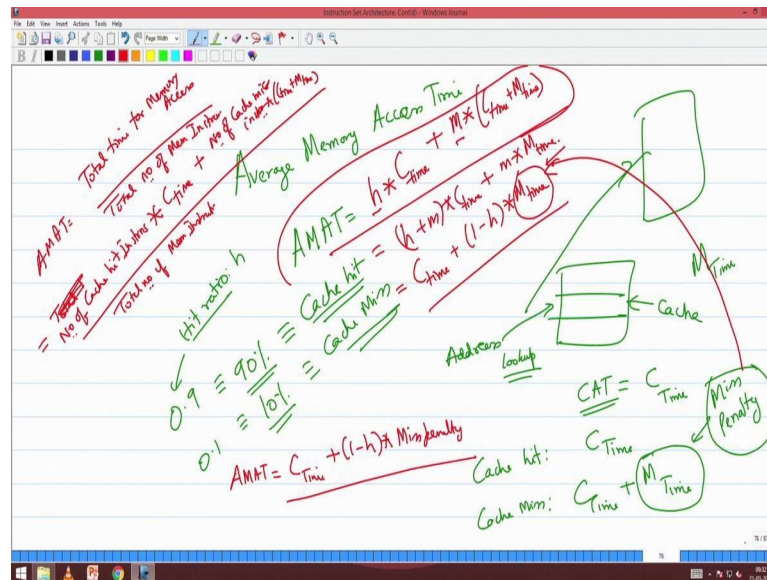 Instruction Set Architecture. Cont(d) - Windows Journal
File Edit View Insert Actions Tools Help
Page Width
B I
Average Memory Access Time
AMAT = Total time for Memory Access
Total no of Mem Instru
= No of Cache hit Instrns * C Time + No of Cache miss instr * (C Time + M Time)
Total no of Mem Instruct
AMAT = h * C Time + m * (C Time + M Time)
= (h+m) * C Time + m * M Time.
= C Time + (1-h) * M Time
Hit ratio: h
0.9 ≡ 90% ≡ Cache hit
0.1 ≡ 10% ≡ Cache Miss
AMAT = C Time + (1-h) * Miss penalty
M Time
Address lookup
Cache
CAT = C Time
Miss Penalty
Cache hit: C Time
Cache Miss: C Time + M Time
76